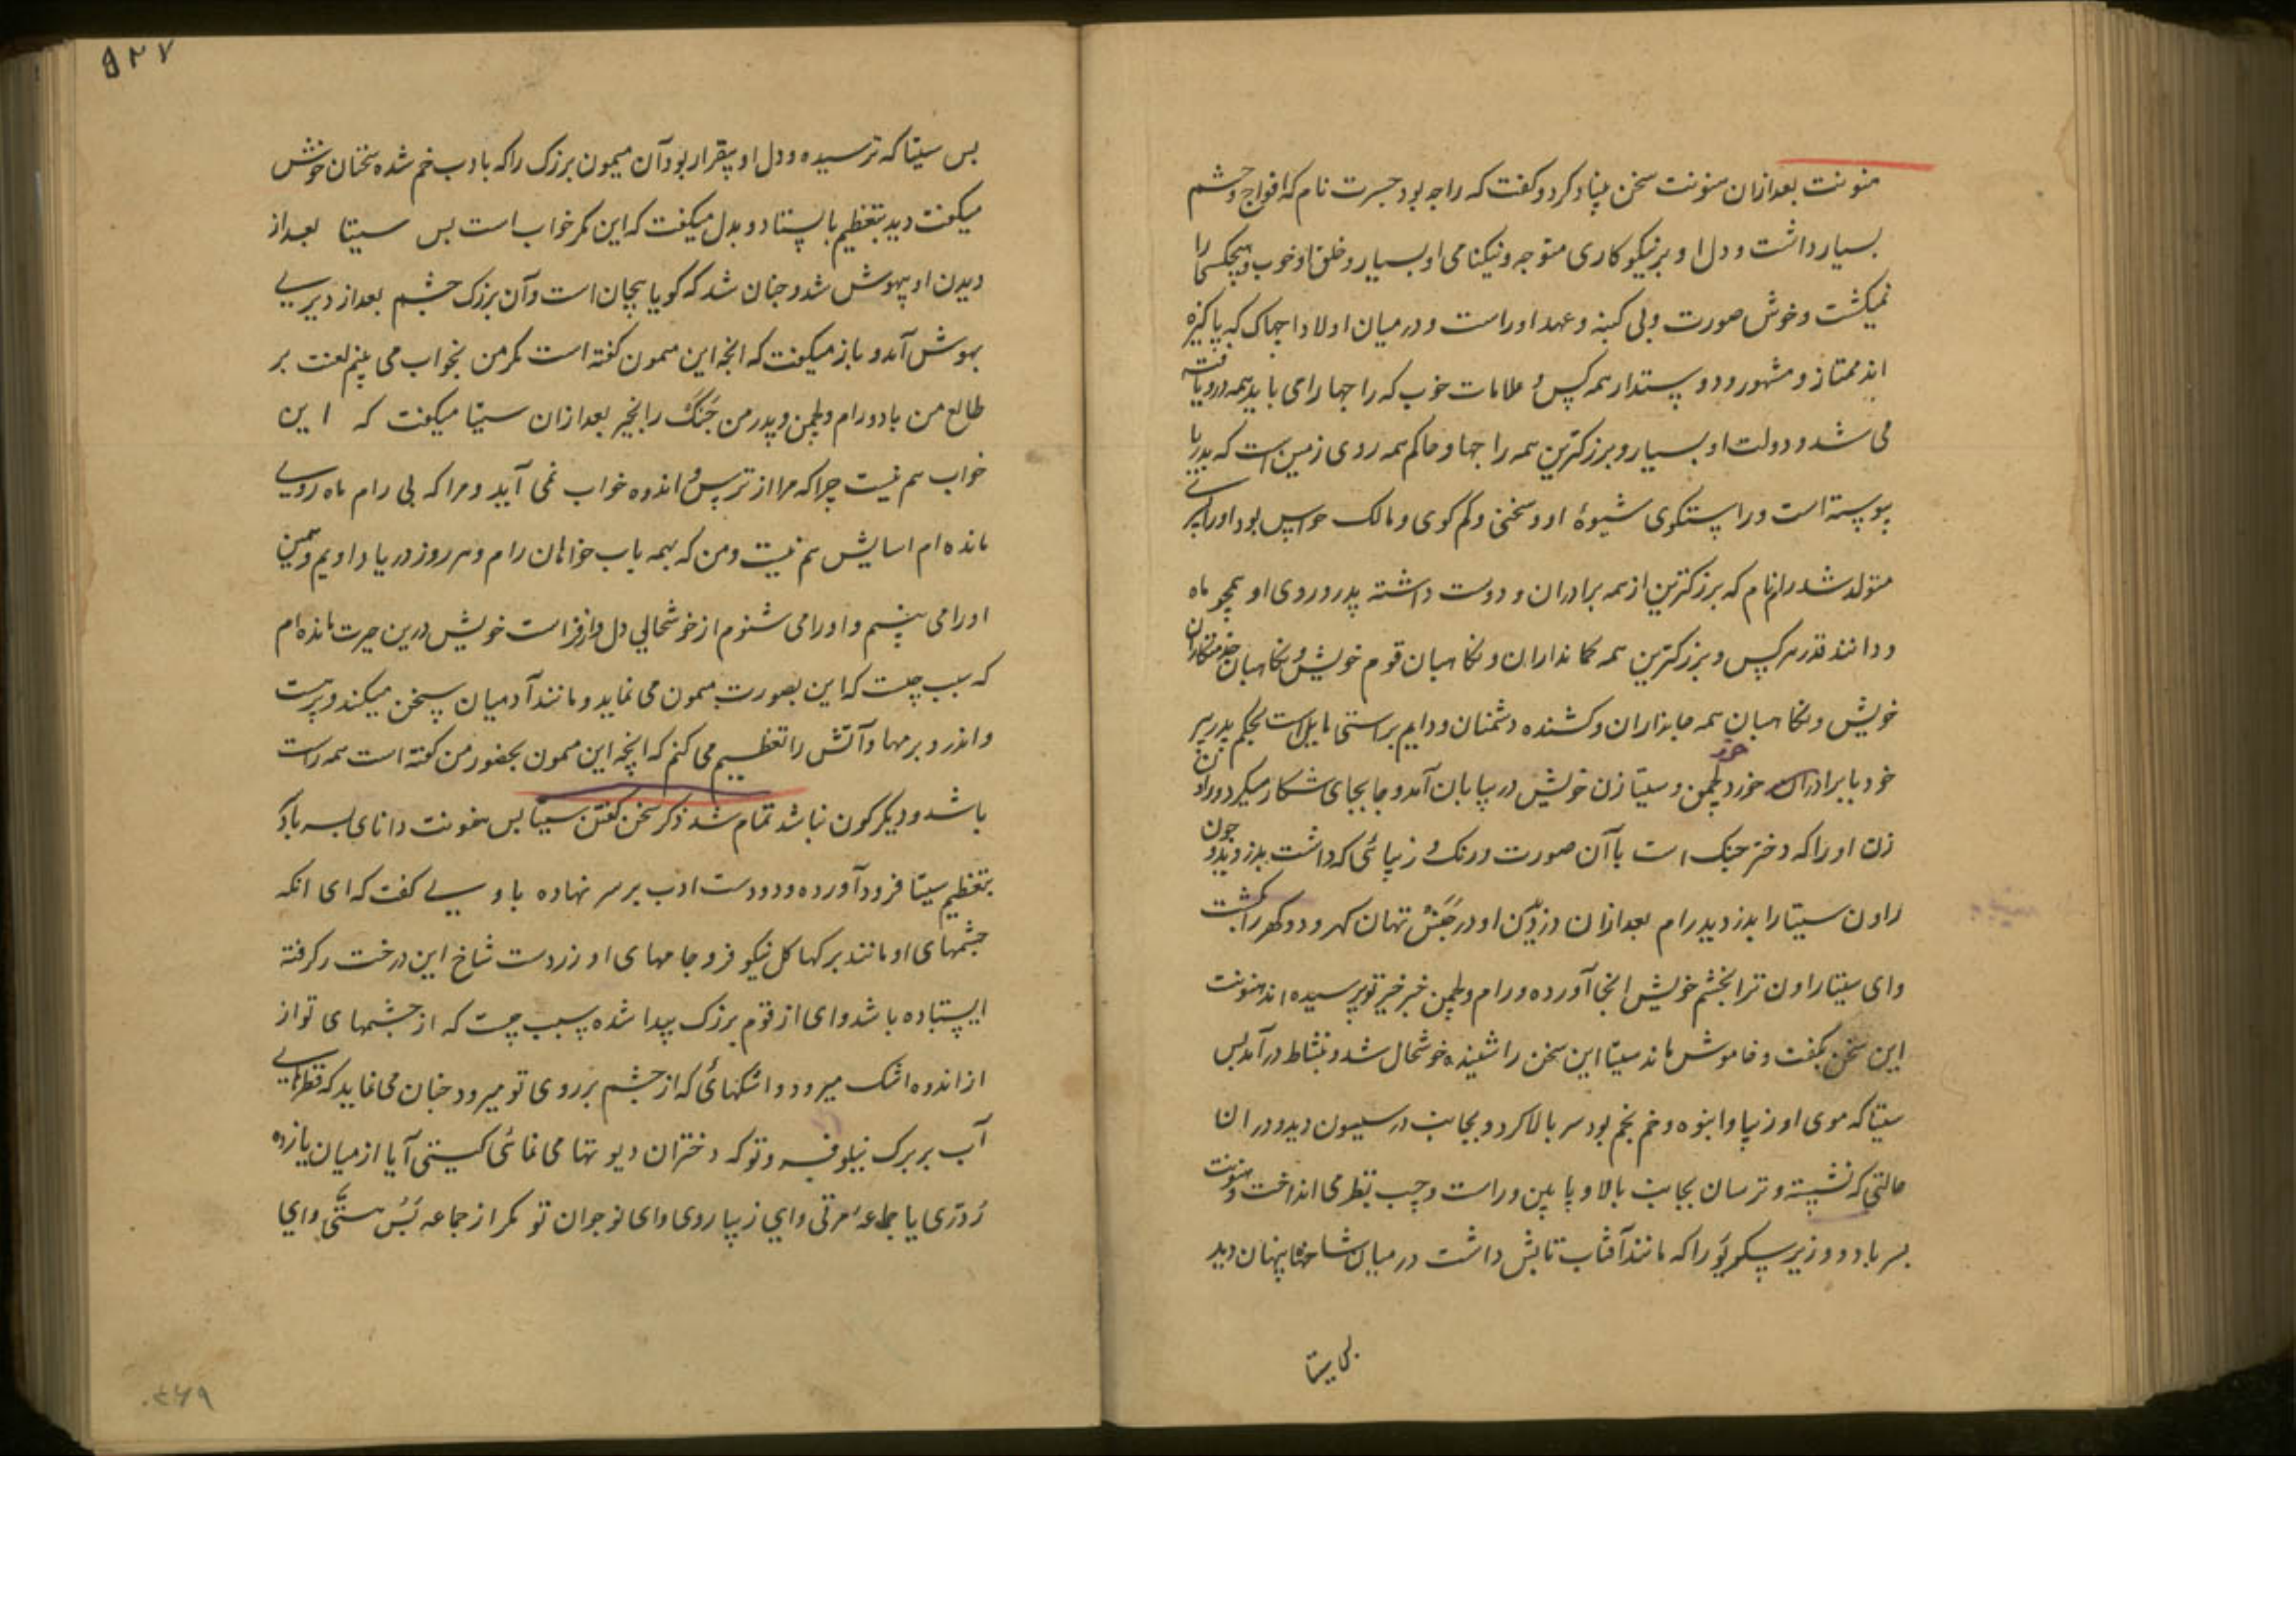 هنونت بعد ازان هنونت سخن بنیاد کرد و گفت که راجه بود جسرت نام که افواج و حشم
بسیار داشت و دل او بر نیکو کاری متوجه و نیکنامی او بسیار و خلق او خوب و هیچکس را
نمیکشت و خوش صورت و بی کینه و عهد او راست و در میان اولاد اجهاک که پاکیزه
اند ممتاز و مشهور و دوستدار همه کس و علامات خوب که راجها را می باید همه در و یافته
می شد و دولت او بسیار و بزرکترین همه راجها و حاکم همه روی زمین است که بدریا
پیوسته است و راستکوی شیوۀ او و سخنی و کم کوی و مالک حواس بود او را پسری
متولد شد رام نام که بزرکترین از همه برادران و دوست داشته پدر و روی او همچو ماه
و دانند قدر هر کس و بزرکترین همه کمانداران و نکاهبان قوم خویش و نکاهبان خدمتکاران
خویش و نکاهبان همه جانداران و کشنده دشمنان و دایم براستی مایل است بحکم پدر پیر
خود با برادران خورد لچمن و سیتا زن خویش در بیابان آمد و جا بجای شکار میکرد و راون
زن او را که دختر جنک است با آن صورت و رنک و زیبائی که داشت بدزدید و چون
راون سیتا را بدزدید رام بعد ازان دزدیدن او در جنس تهان کهر و دوکهر را بکشت
وای سیتا راون ترا بخشم خویش اینجا آورده و رام و لچمن خبر خیر تو پرسیده اند هنونت
این سخن بکفت و خاموش ماند سیتا این سخن را شنیده خوشحال شد و بنشاط در آمد پس
سیتا که موی او زیبا و انبوه و خم بخم بود سر بالا کرد و بجانب در سیسون دید و در ان
حالتی که نشسته و ترسان بجانب بالا و پایین و راست و چپ نظر می انداخت و هنونت
پسر باد و وزیر سکریو را که مانند آفتاب تابش داشت در میان شاخها پنهان دید
بس سیتا
۵۲۷
بس سیتا که ترسیده و دل او بیقرار بود آن میمون بزرک را که بادب خم شده سخنان خوش
میکفت دید بتعظیم بایستاد و بدل میکفت که این مکر خواب است بس سیتا بعد از
دیدن او بیهوش شد و چنان شد که کویا بیجان است و آن بزرک چشم بعد از دیری
بهوش آمد و باز میکفت که انچه این میمون کفته است مکر من بخواب می بینم لعنت بر
طالع من باد و رام و لچمن و پدر من جنک را بخیر بعد ازان سیتا میکفت که این
خواب هم نیست چرا که مرا از ترس و اندوه خواب نمی آید و مرا که بی رام ماه روی
مانده ام اسایش هم نیست و من که بهمه باب خواهان رام و هر روز در یاد اویم و همین
او را می بینم و او را می شنوم از خوشحالی دل خویش درین حیرت مانده ام
که سبب چیست که این بصورت میمون می نماید و مانند آدمیان سخن میکند و برهست
و اندر و برمها و آتش را تعظیم می کنم که انچه این میمون بحضور من کفته است همه راست
باشد و دیکر کون نباشد تمام شد ذکر سخن کفتن سیتا بس هنونت دانای پسر باد که
بتعظیم سیتا فرود آورده و دو دست ادب بر سر نهاده با وی کفت که ای انکه
چشمهای او مانند برکهای کل نیکوفر و جامهای او زردست شاخ این درخت کرفته
ایستاده باشد وای از قوم بزرک پیدا شده سبب چیست که از چشمهای تو از
از اندوه اشک میرود و اشکهائی که از چشم بر روی تو میرود چنان می نماید که قطرهای
آب بر برک نیلوفر و تو که دختران دیوتها می نمائی کیستی آیا از میان یازده
ردری یا جماعه مرتی وای زیبا روی وای نوجوان تو مکر از جماعه بس هستی وای
۴۶۹